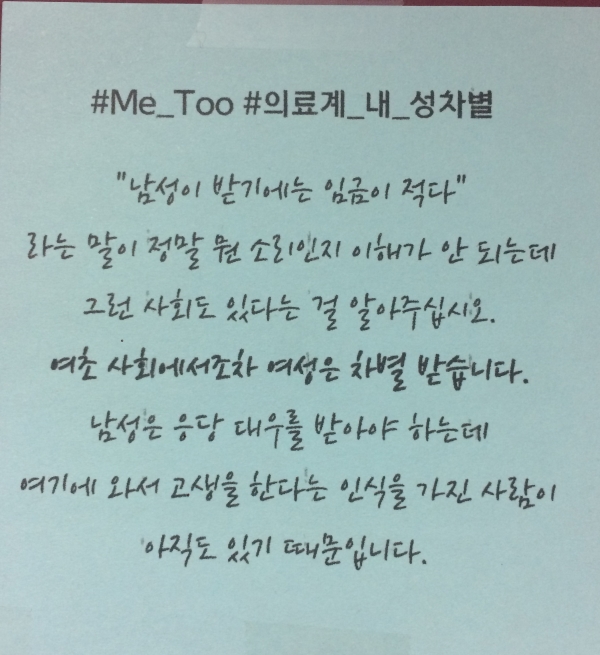 #Me_Too #의료계_내_성차별
"남성이 받기에는 임금이 적다"
라는 말이 정말 뭔 소리인지 이해가 안 되는데
그런 사회도 있다는 걸 알아주십시오.
여초 사회에서조차 여성은 차별 받습니다.
남성은 응당 대우를 받아야 하는데
여기에 와서 고생을 한다는 인식을 가진 사람이
아직도 있기 때문입니다.